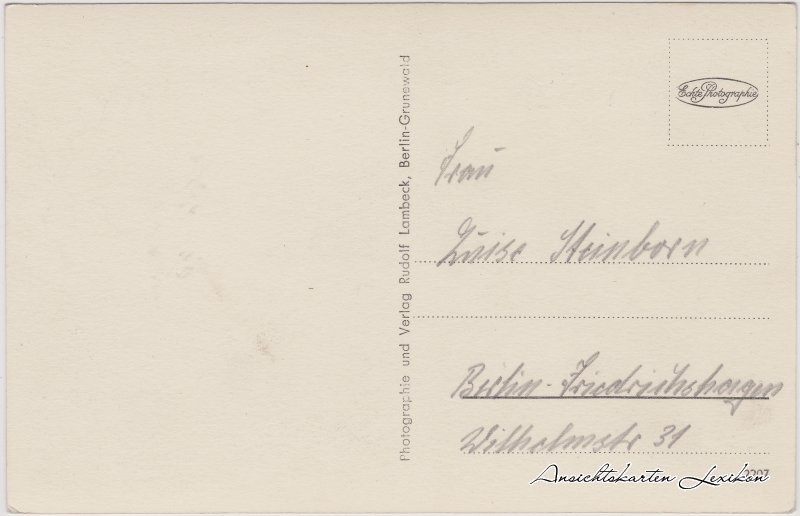 Photographie und Verlag Rudolf Lambeck, Berlin-Grunewald
Echte Photographie
Frau
Luise Steinborn
Berlin-Friedrichshagen
Wilhelmstr 31
2207
Ansichtskarten Lexikon